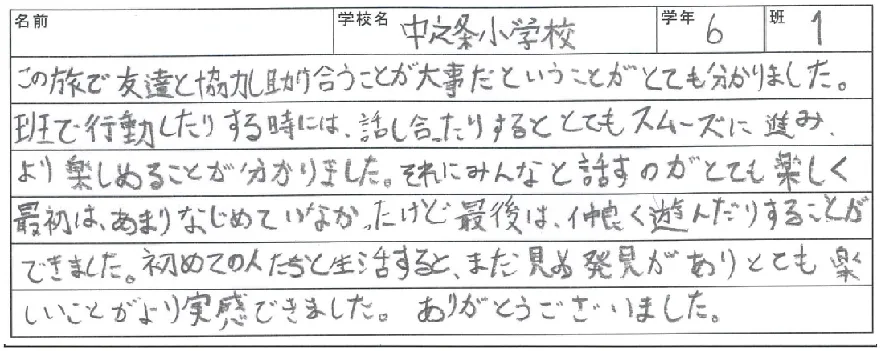 名前 学校名 中之条小学校 学年 6 班 1
この旅で友達と協力し助け合うことが大事だということがとても分かりました。
班で行動したりする時には、話し合ったりするととてもスムーズに進み、
より楽しめることが分かりました。それにみんなと話すのがとても楽しく
最初は、あまりなじめていなかったけど最後は、仲良く遊んだりすることが
できました。初めての人たちと生活すると、また発見がありとても楽
しいことがより実感できました。ありがとうございました。